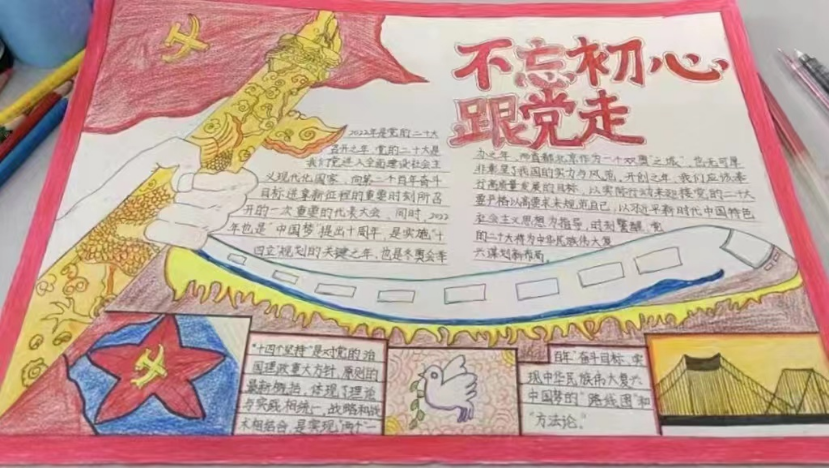 不忘初心
跟党走
2022年是党的二十大
召开之年 党的二十大是
我们党进入全面建设社会主
义现代化国家、向第二个百年奋斗
目标进军新征程的重要时刻所召
开的一次重要的代表大会、同时，2022
年也是"中国梦"提出十周年 是实施"十
四五"规划的关键之年，也是冬奥会举
办之年，而首都北京作为一个双奥之城
非彰显了我国的实力与风范，开创之年，我们应怀着
对高质量发展的目标，以实际行动来迎接党的二十大
要严格以高要求来规范自己，以习近平新时代中国特色
社会主义思想为指导，时刻警醒
的二十大将为中华民族伟大复
兴谋划新布局。
"十四个坚持"是对党的治
国理政重大方针、原则的
最新概括，体现了理论
与实践相统一、战略和战
术相结合，是实现"两个一
百年"奋斗目标、实
现中华民族伟大复兴
中国梦的"路线图"和
"方法论。"